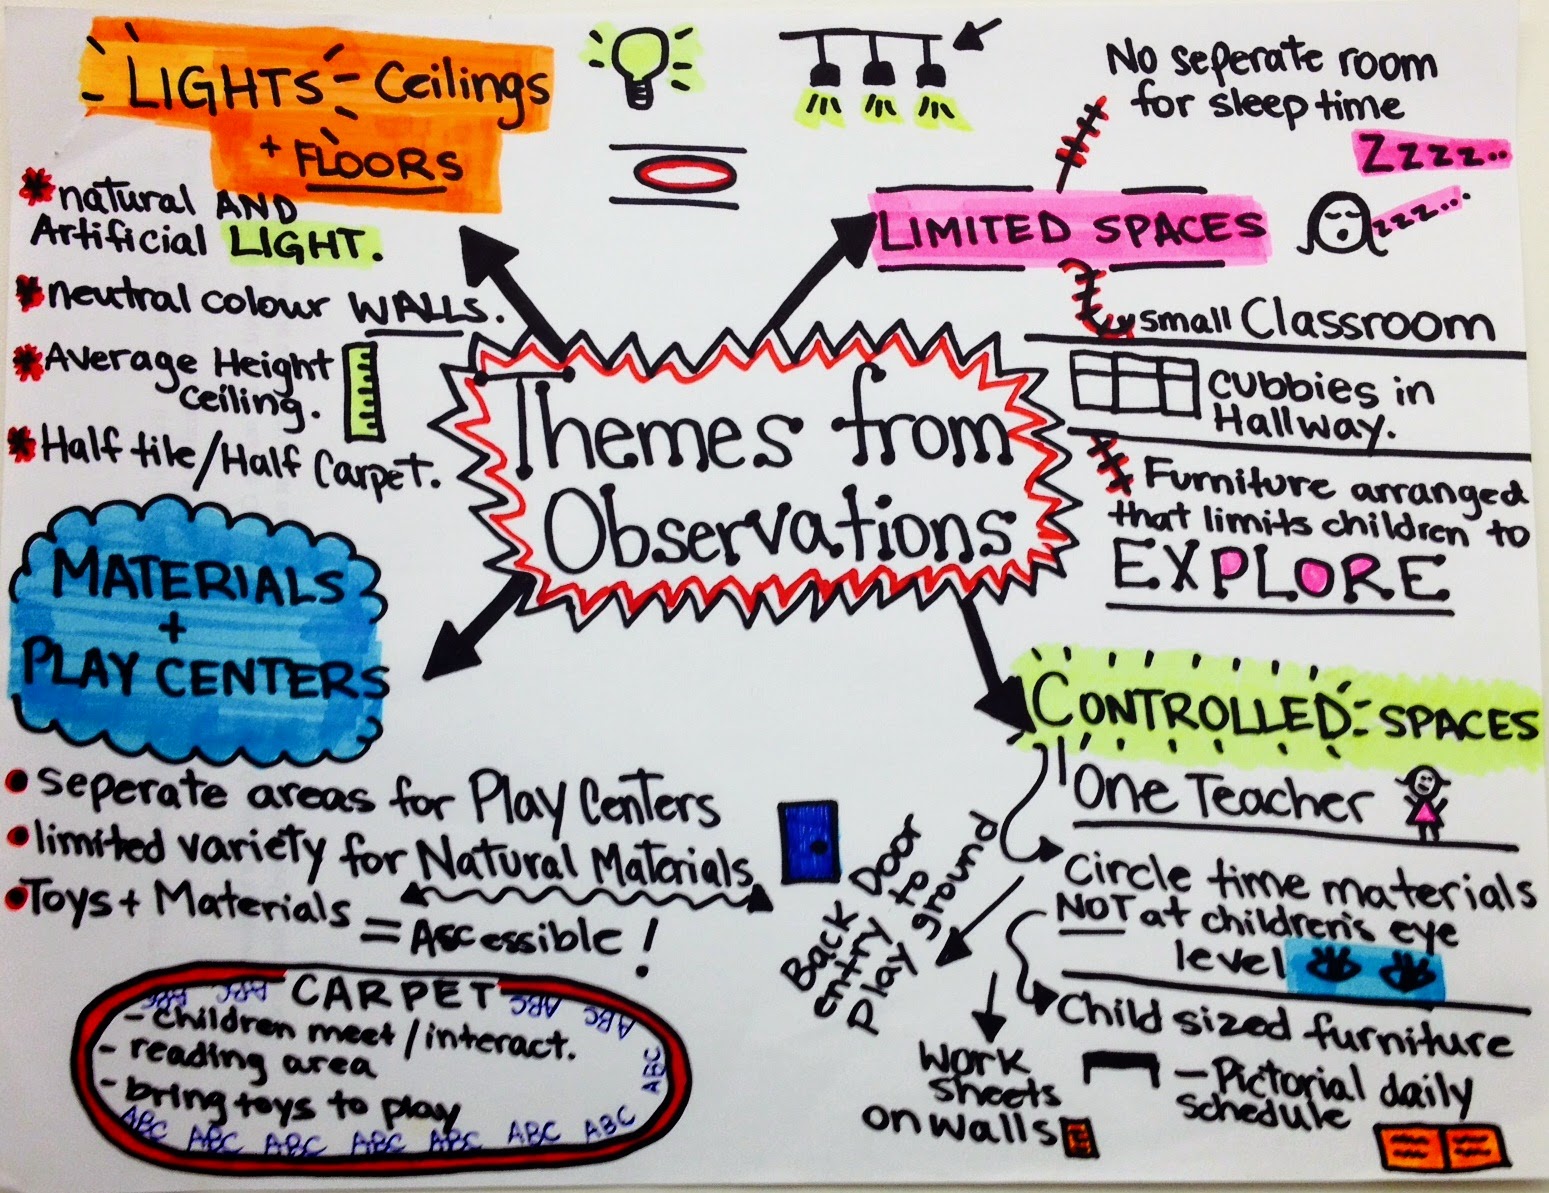 LIGHTS - Ceilings
+ FLOORS
* natural AND
Artificial LIGHT.
* neutral colour WALLS.
* Average Height
ceiling.
* Half tile/Half Carpet.
No seperate room
for sleep time
Zzzz..
zzz...
LIMITED SPACES
small Classroom
cubbies in
Hallway.
Furniture arranged
that limits children to
EXPLORE
Themes from
Observations
MATERIALS
+
PLAY CENTERS
• seperate areas for Play Centers
• limited variety for Natural Materials
• Toys + Materials
= Accessible!
CARPET
- children meet/interact.
- reading area
- bring toys to play
ABC ABC ABC ABC
ABC
ABC ABC ABC ABC ABC ABC ABC
CONTROLLED - SPACES
One Teacher
Circle time materials
NOT at children's eye
level
Child sized furniture
- Pictorial daily
schedule
Back Door
entry to
Play ground
Work
sheets
on walls